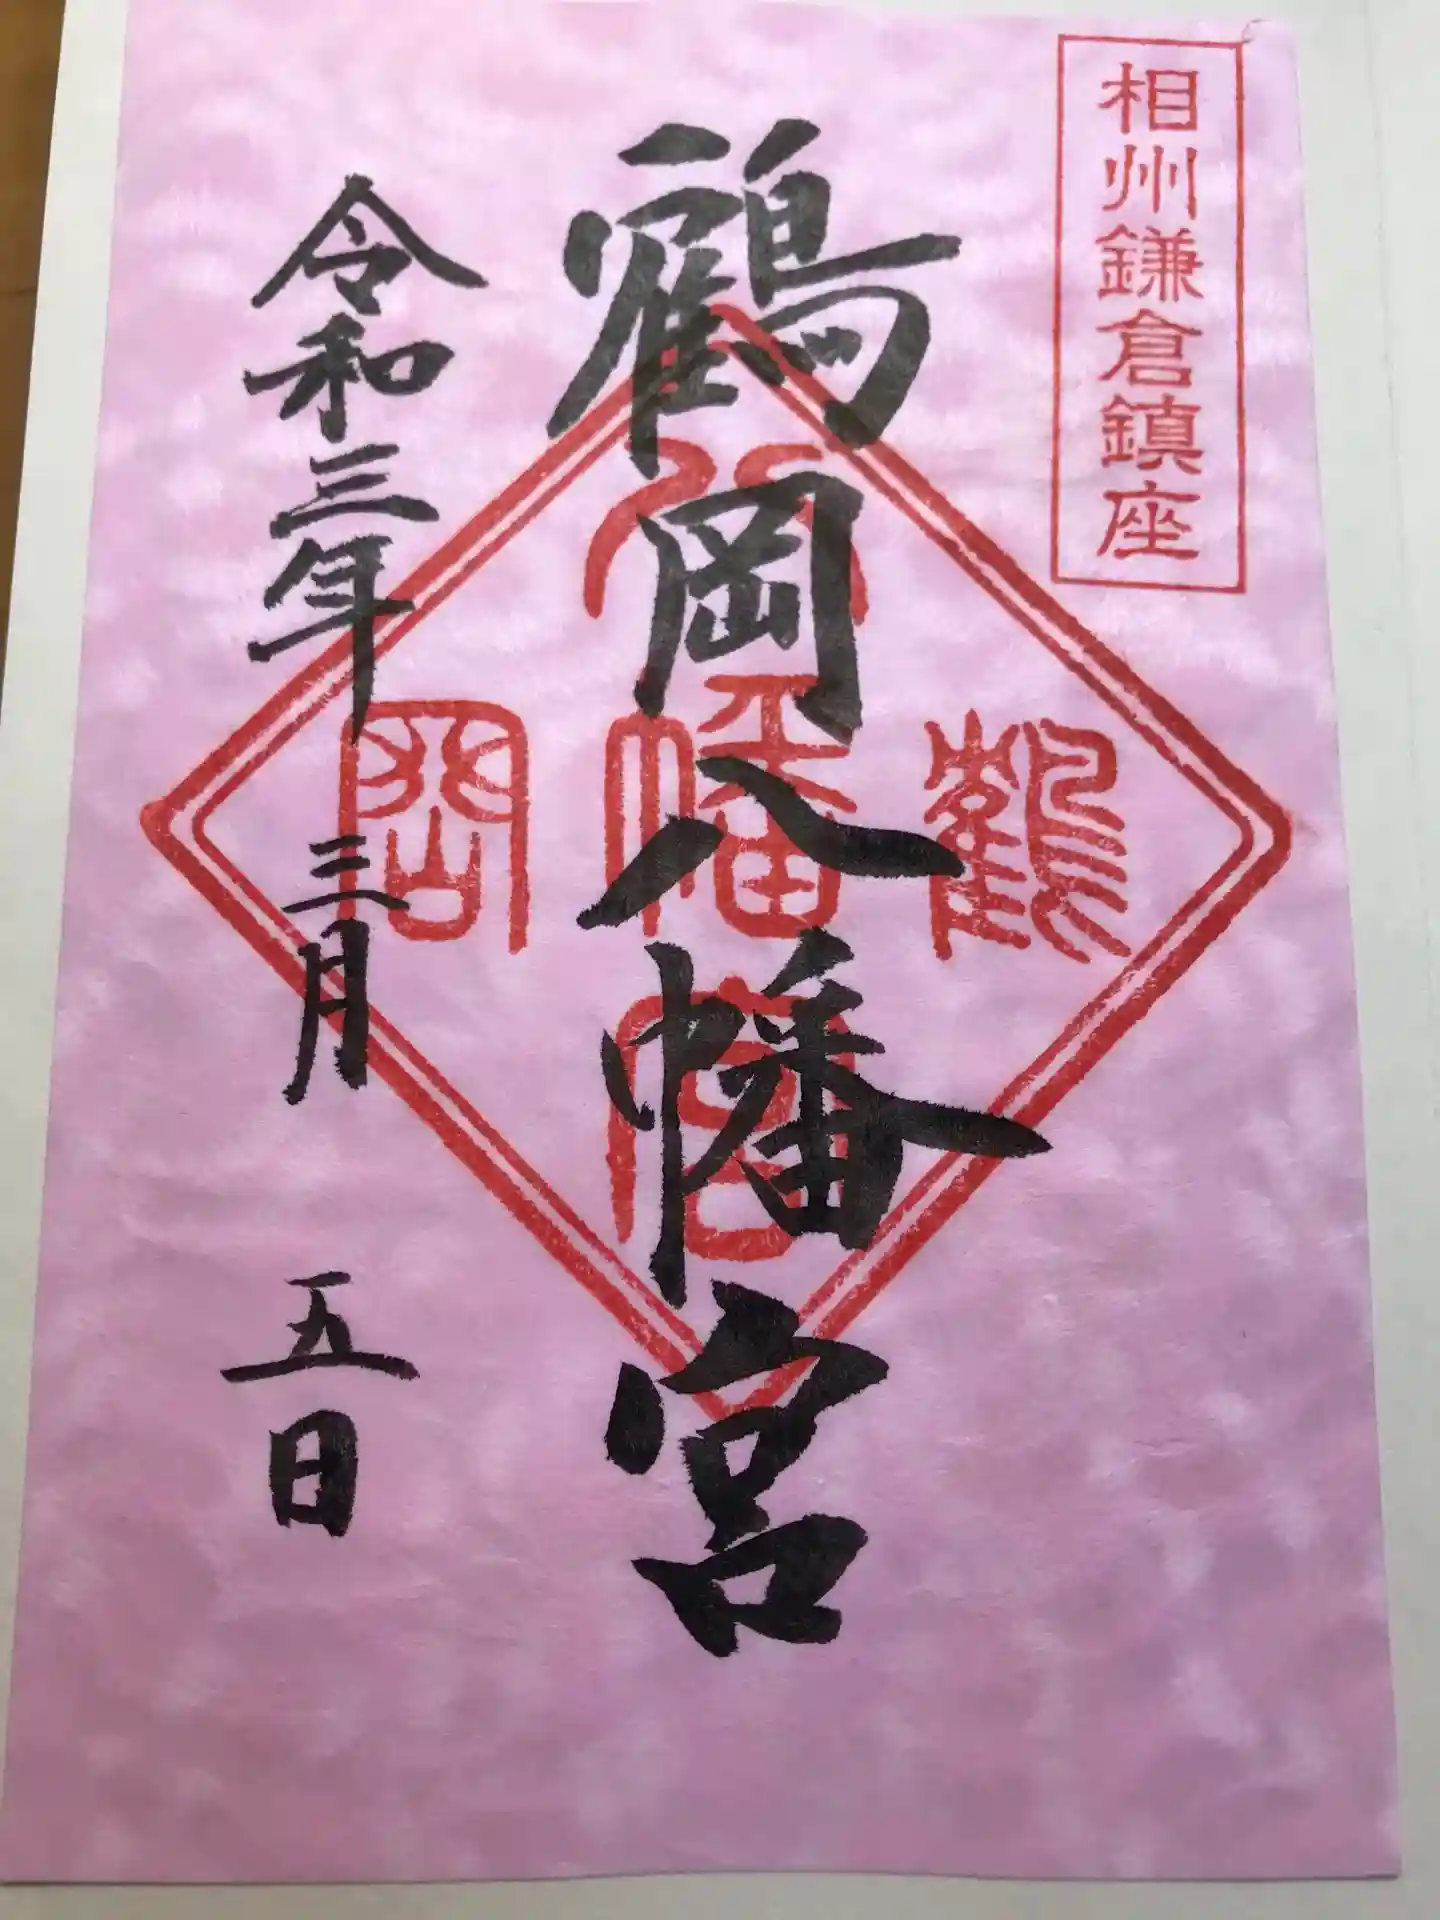 相州鎌倉鎮座
鶴岡八幡宮
鶴
八幡宮
岡
令和三年三月五日